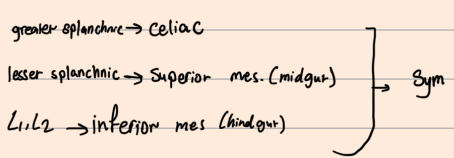 greater splanchnic → celiac
lesser splanchnic → Superior mes. (midgut)
L1,L2 → inferior mes (hindgut)
→ Sym